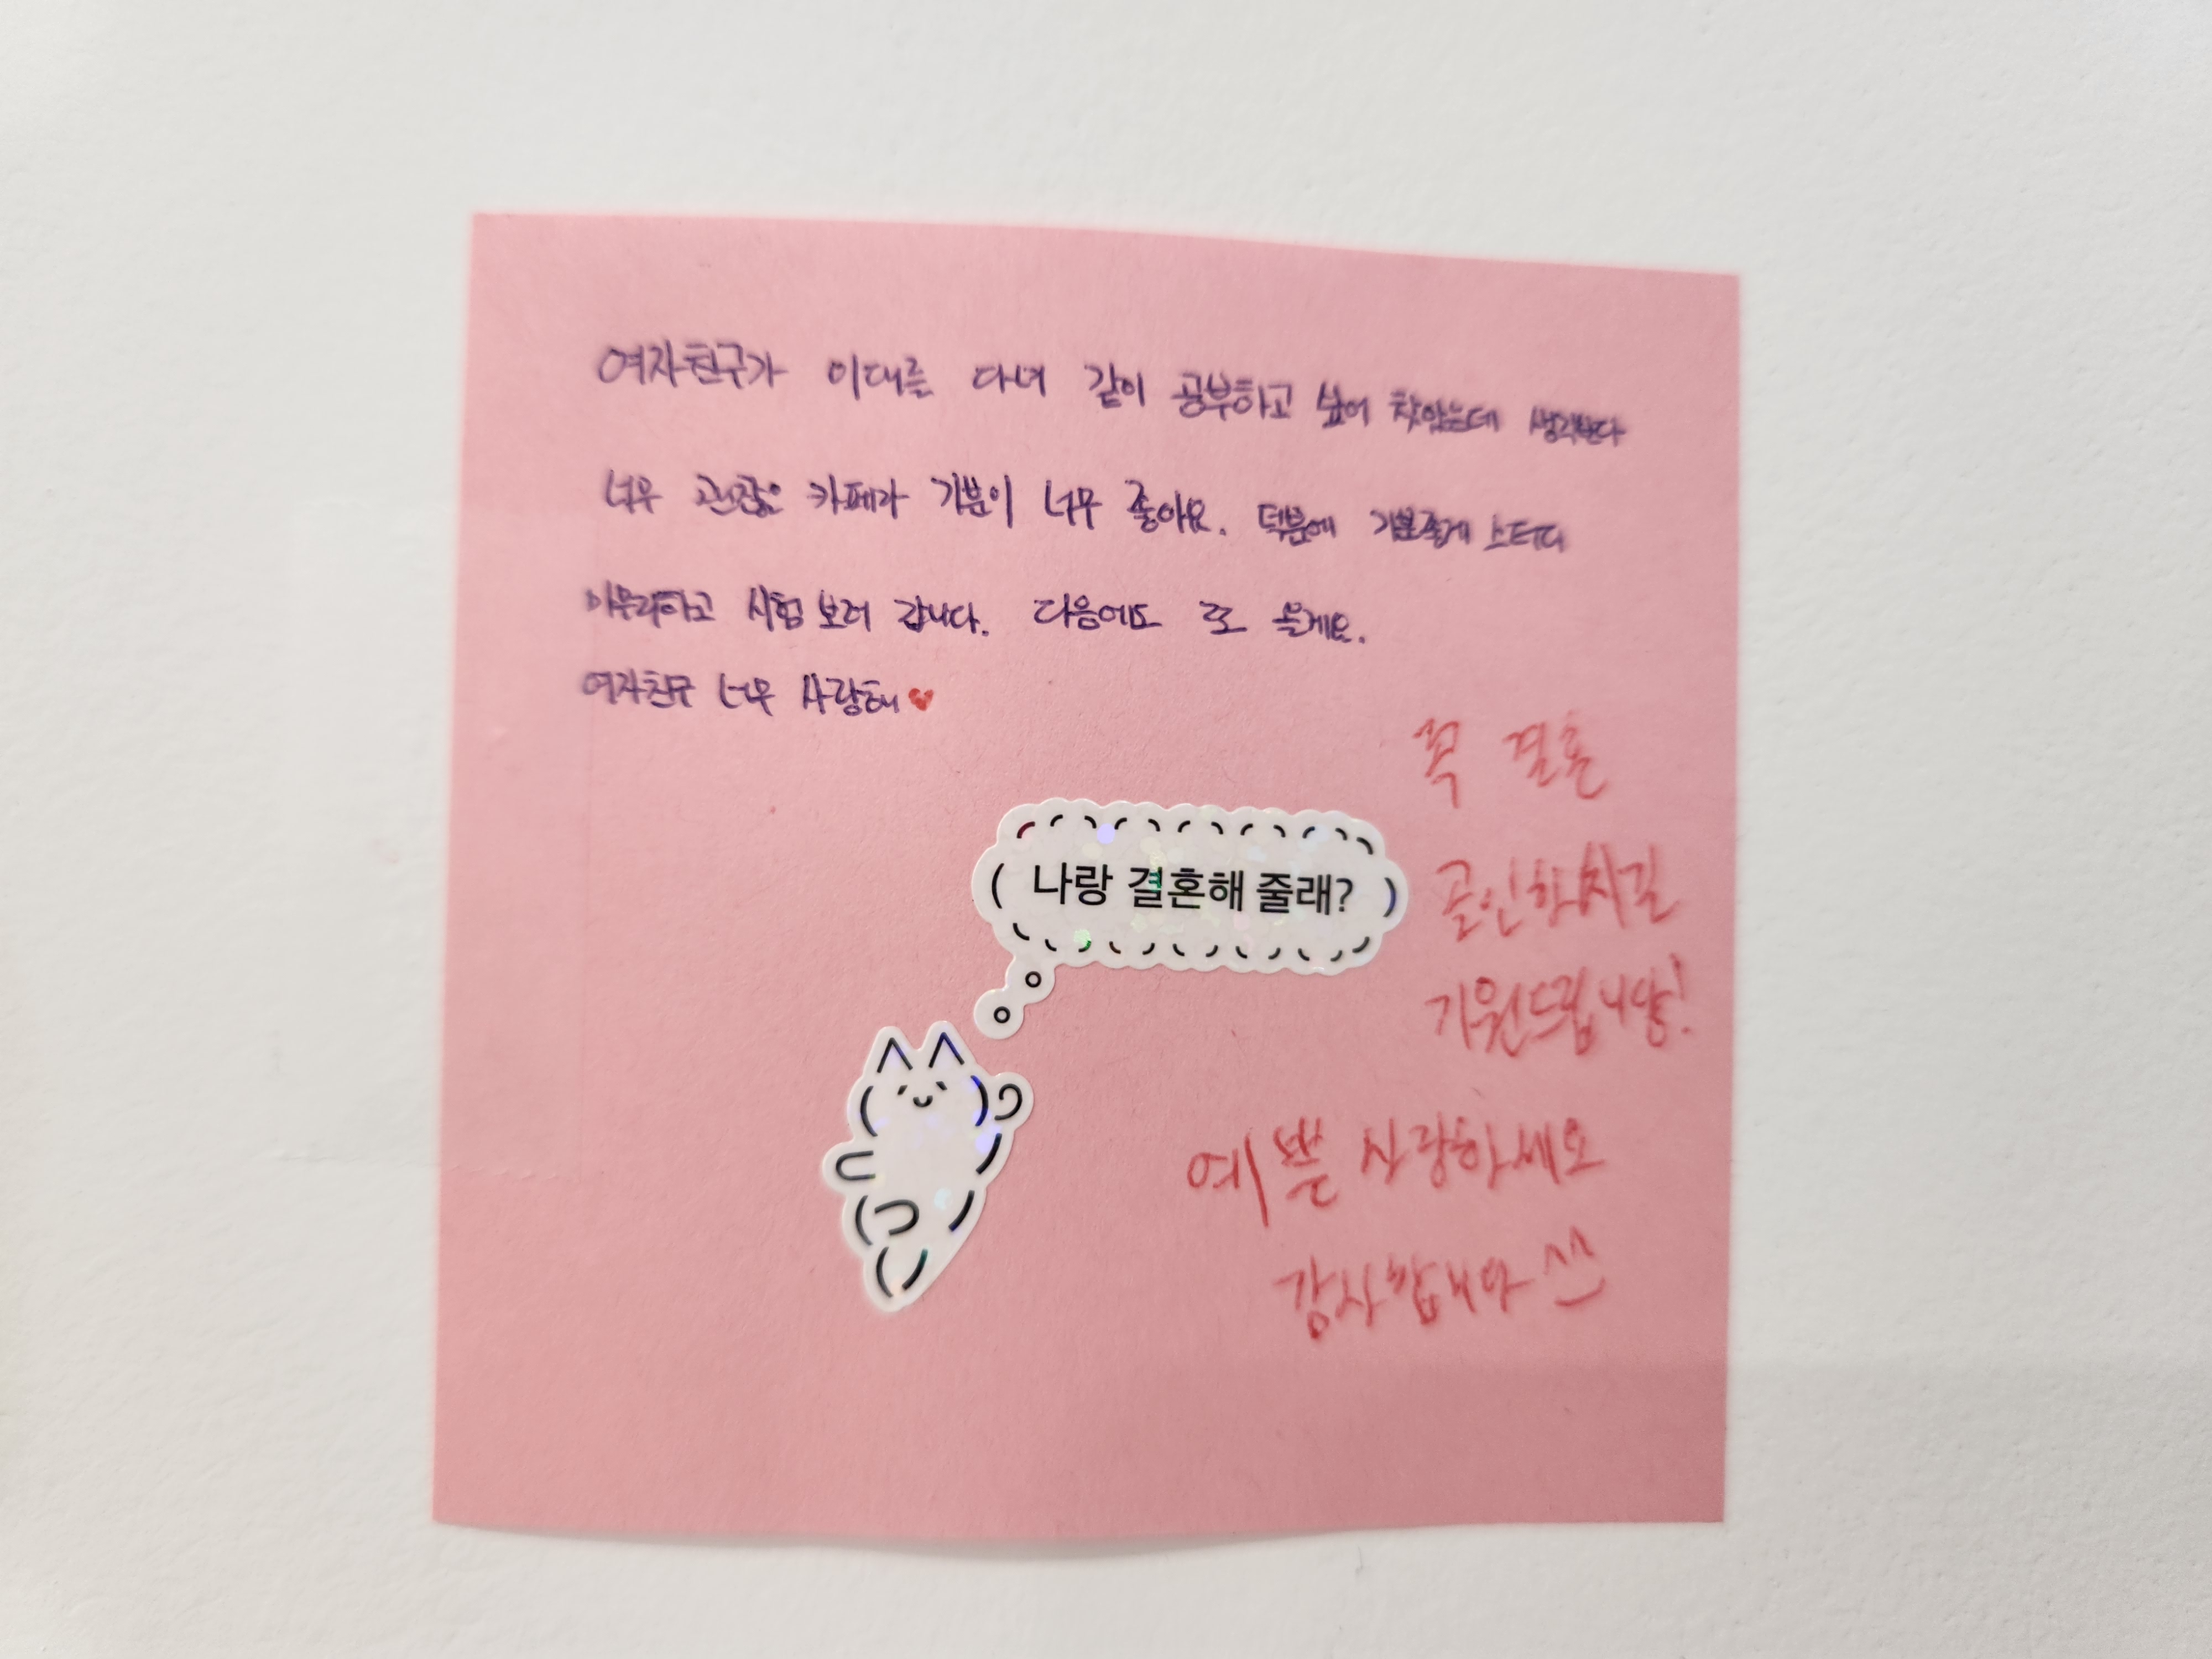 여자친구가 이대를 다녀 같이 공부하고 싶어 찾았는데 생각보다
너무 괜찮은 카페라 기분이 너무 좋아요. 덕분에 기분좋게 스터디
마무리하고 시험 보러 갑니다. 다음에도 또 올게요.
여자친구 너무 사랑해
꼭 결혼
나랑 결혼해 줄래?
골인하시길
기원드립니당!
예쁜 사랑하세요
감사합니다 ^^